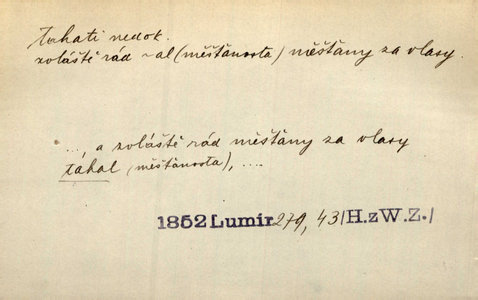 tahati nedok.
zvláště rád -al (měšťanosta) měšťany za vlasy.
..., a zvláště rád měšťany za vlasy
táhal (měšťanosta), ....
1852 Lumír 279, 43/H.zW.Z./